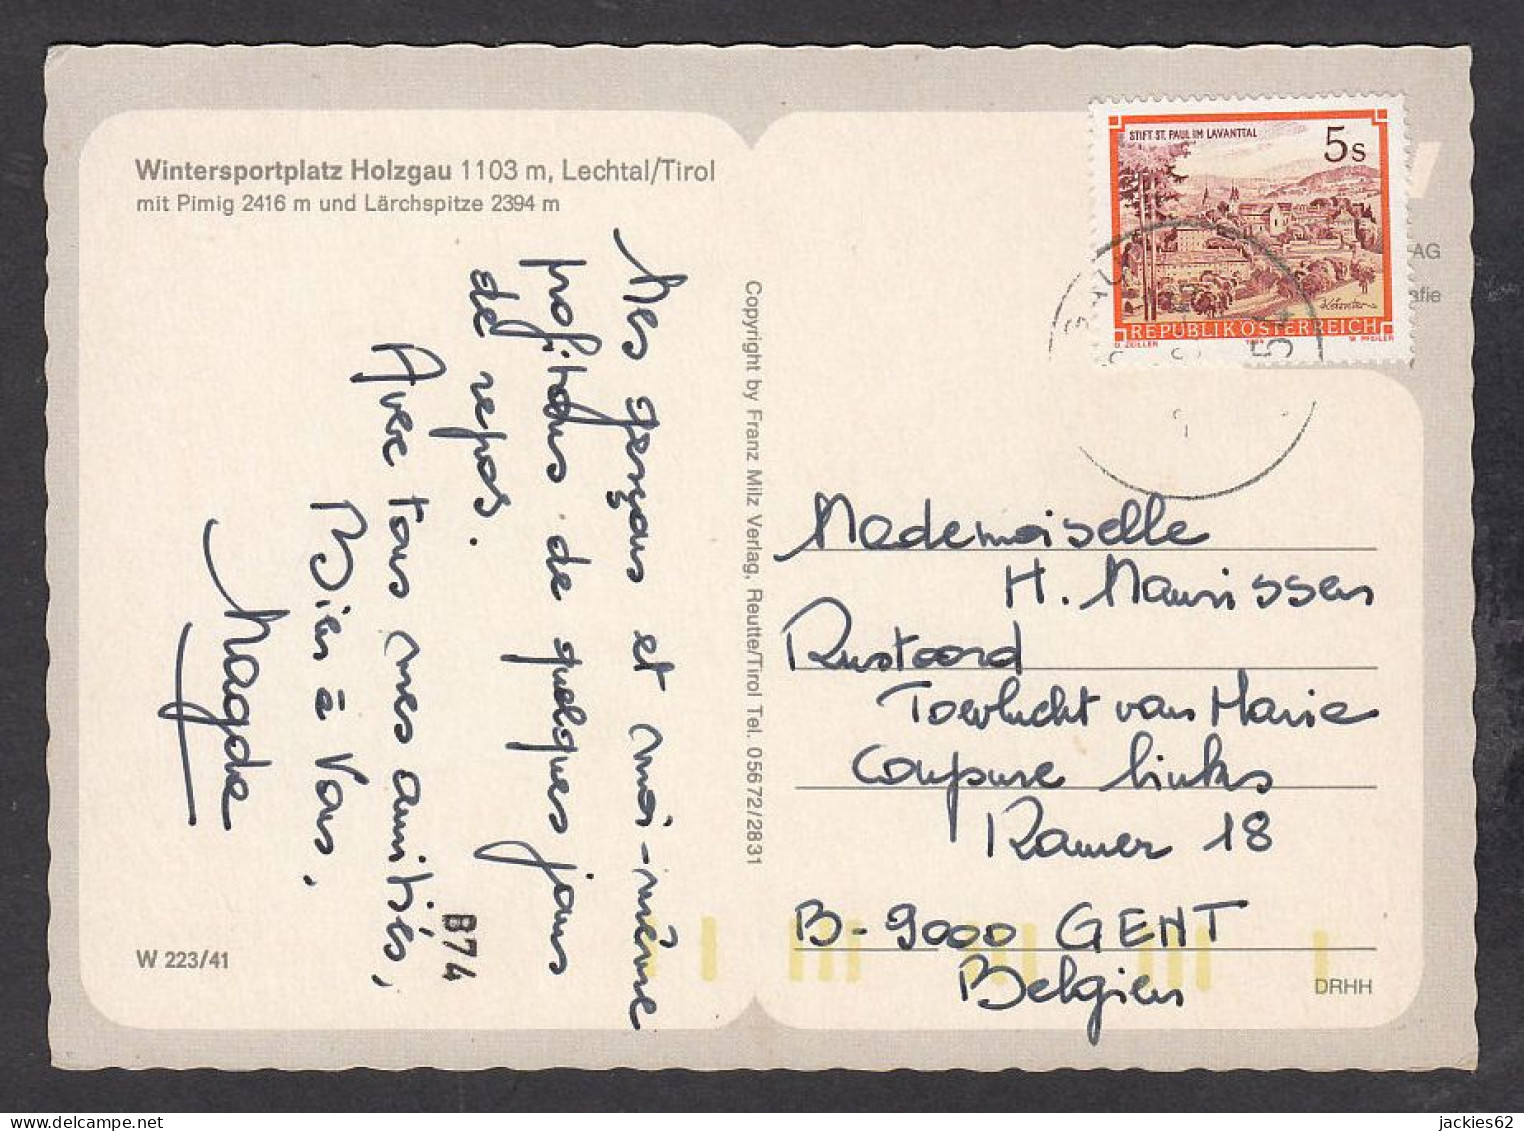 Wintersportplatz Holzgau 1103 m, Lechtal/Tirol
mit Pimig 2416 m und Lärchspitze 2394 m
Mes garçons et moi-même
profitons de quelques jours
de repos.
Avec tous mes amitiés,
Bien à Vous.
Magda
B74
W 223/41
Copyright by Franz Milz Verlag, Reutte/Tirol Tel. 05672/2831
STIFT ST. PAUL IM LAVANTTAL
5s
REPUBLIK ÖSTERREICH
G. ZEILLER
W. PFEILER
AG
afie
Mademoiselle
H. Maurissen
Rustoord
Toevlucht van Marie
Coupure links
Kamer 18
B-9000 GENT
Belgien
DRHH
jackies62